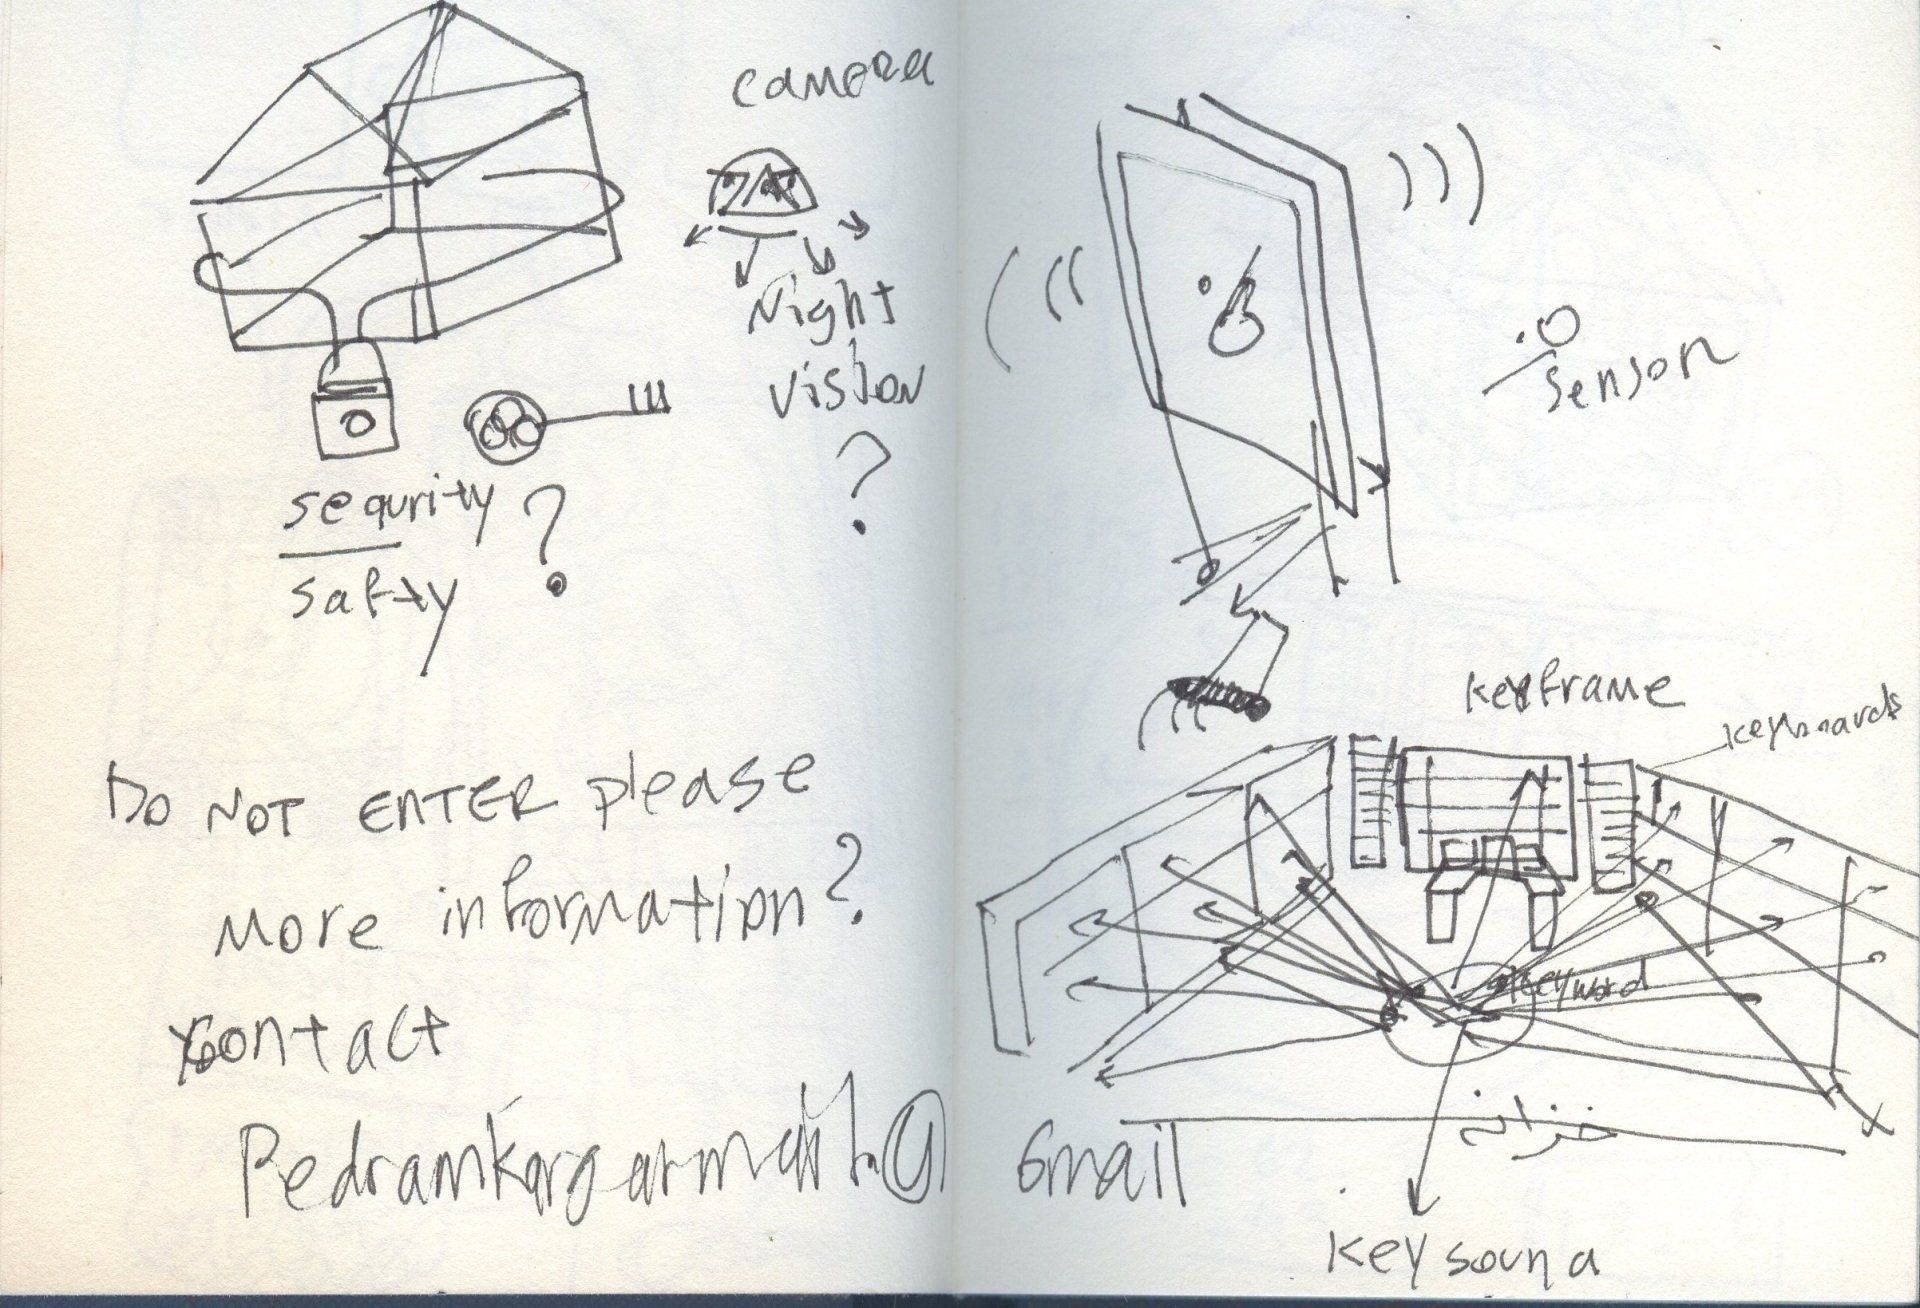 camera
Night
vision
?
sequrity ?
safty
Do NOT ENTER please
more information?
contact
@ Gmail
sensor
keyframe
keyboards
keyword
خزانة
key sound